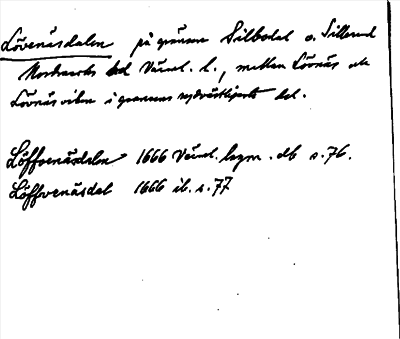 Lövenäsdalen på gränsen Silbodal o. Sillerud
Nordmarks hd Värml. l., mellan Lövnäs
Lövnäsviken i grannens sydvästligaste del.
Löffvenäsdalen 1666 Värml. lagm. db s. 76.
Löffvenäsdal 1666 ib. s. 77